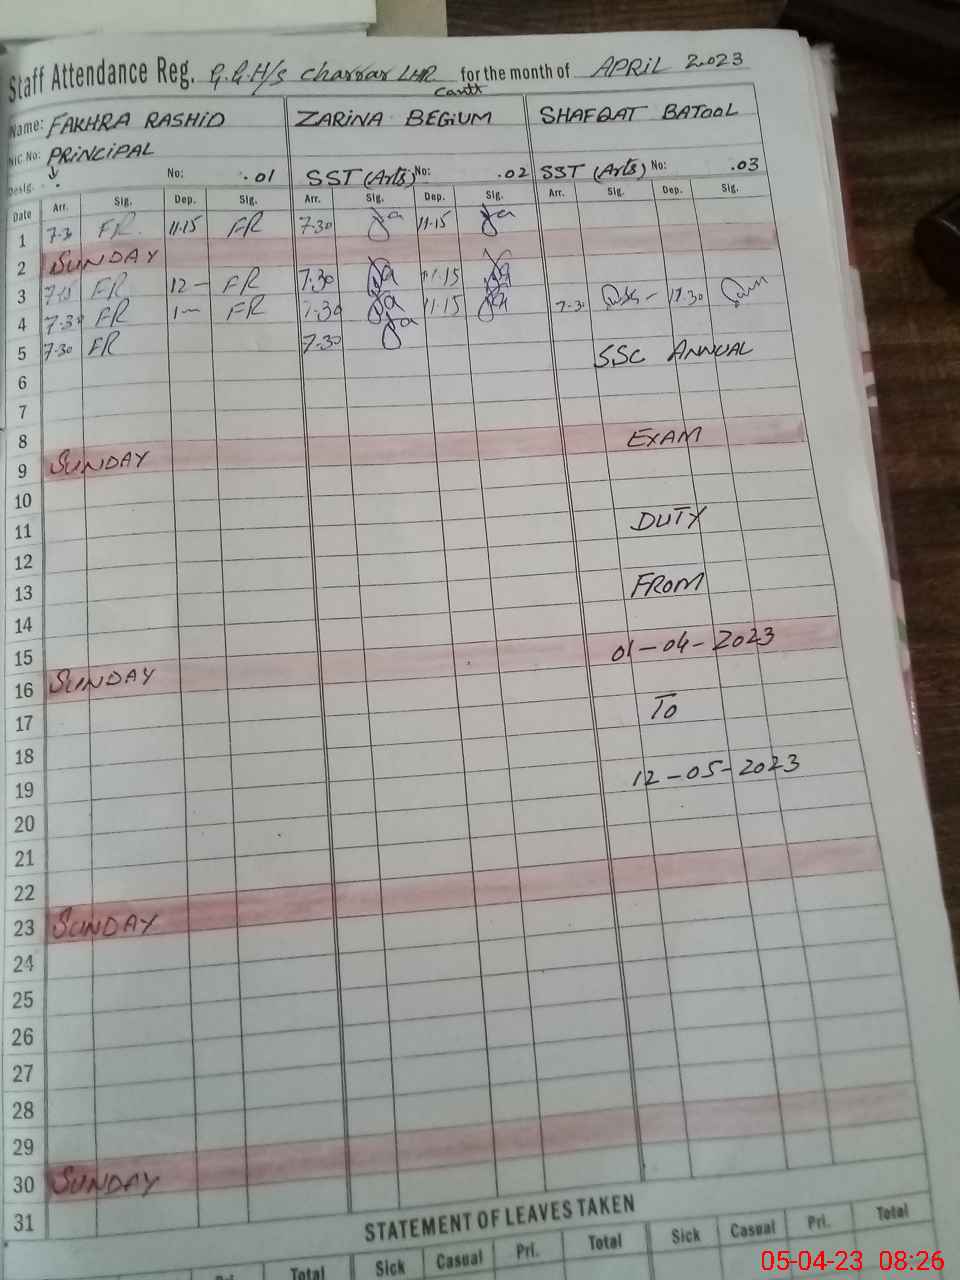 Staff Attendance Reg. G.G.H/s Charrar LHR Cantt for the month of APRIL 2023
Name: FAKHRA RASHID ZARINA BEGIUM SHAFQAT BATOOL
NIC No: PRINCIPAL
Desig. No: .01 SST (Arts) No: .02 SST (Arts) No: .03
Date Arr. Sig. Dep. Sig. Arr. Sig. Dep. Sig. Arr. Sig. Dep. Sig.
1 7-30 FR 11-15 FR 7-30 11-15
2 SUNDAY
3 7-15 FR 12- FR 7.30 11.15
4 7-30 FR 1- FR 7.30 11.15 7-30 11.30
5 7-30 FR 7-30
SSC ANNUAL
6
7
8
EXAM
9 SUNDAY
10
11
DUTY
12
13
FROM
14
15
01-04-2023
16 SUNDAY
17
To
18
19
12-05-2023
20
21
22
23 SUNDAY
24
25
26
27
28
29
30 SUNDAY
31
STATEMENT OF LEAVES TAKEN
Pri. Total Sick Casual Pri. Total Sick Casual Pri. Total
05-04-23 08:26